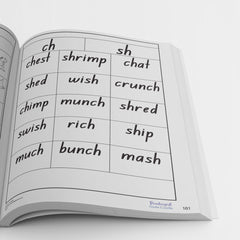 ch sh
chest shrimp chat
shed wish crunch
chimp munch shred
swish rich ship
much bunch mash
101